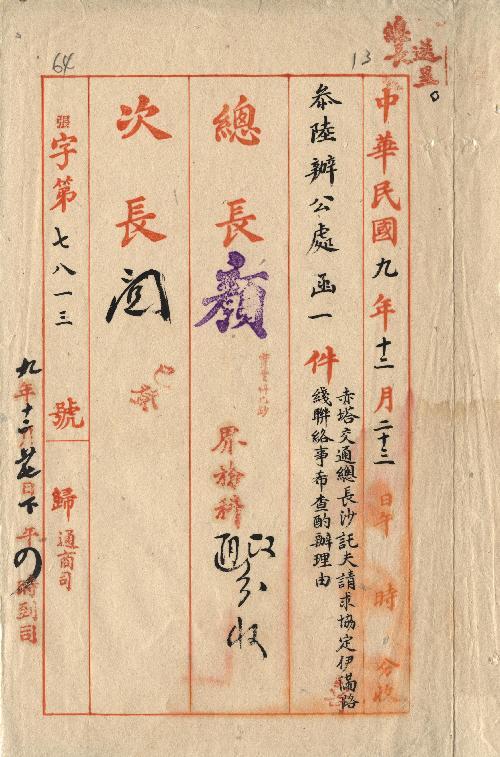 13
64
總長
送呈
中華民國九年十二月二十三日午 時 分收
叅陸辦公處函一件
赤塔交通總長沙託夫請求協定伊滿路
綫聯絡事希查酌辦理由
總長
界務科
次長
閱
已發
張字第七八一三號
歸通商司
九年十二月 日下午 時到司